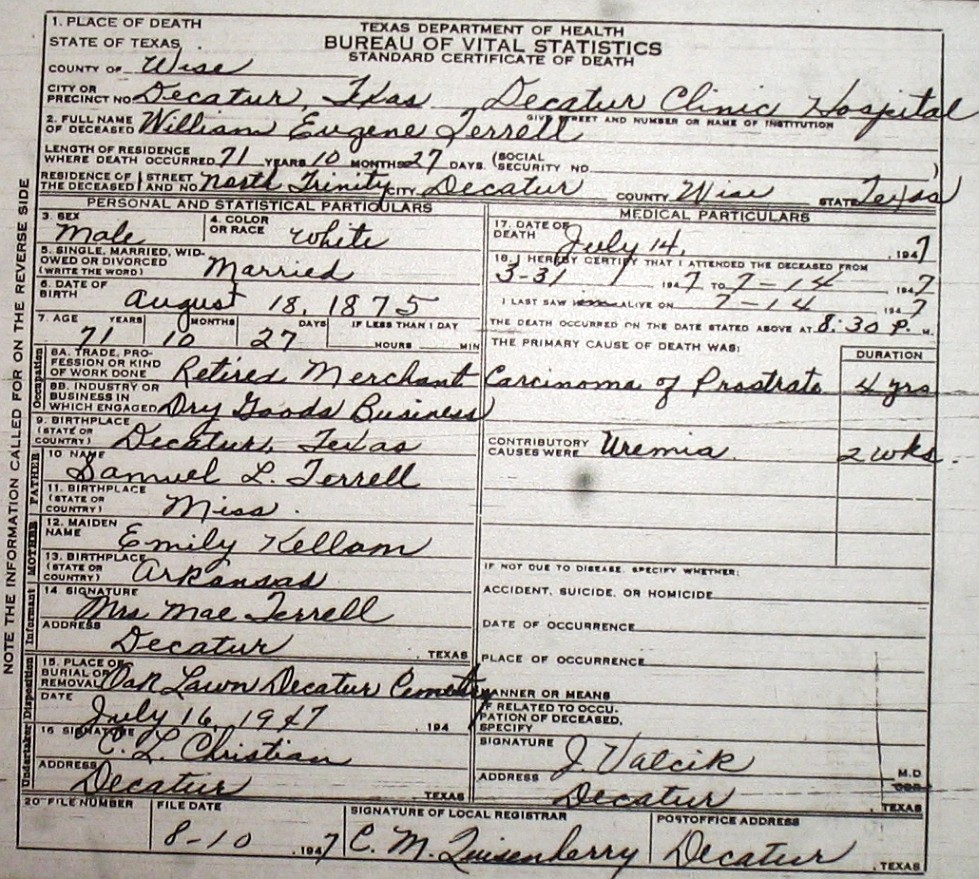 1. PLACE OF DEATH
STATE OF TEXAS
TEXAS DEPARTMENT OF HEALTH
BUREAU OF VITAL STATISTICS
STANDARD CERTIFICATE OF DEATH
COUNTY OF Wise
CITY OR PRECINCT NO Decatur, Txas Decatur Clinic Hospital
GIVE STREET AND NUMBER OR NAME OF INSTITUTION
2. FULL NAME OF DECEASED William Eugene Terrell
LENGTH OF RESIDENCE WHERE DEATH OCCURRED 71 YEARS 10 MONTHS 27 DAYS. (SOCIAL SECURITY NO. )
RESIDENCE OF THE DECEASED STREET AND NO North Trinity CITY Decatur COUNTY Wise STATE Texas
PERSONAL AND STATISTICAL PARTICULARS
3. SEX Male
4. COLOR OR RACE White
5. SINGLE, MARRIED, WIDOWED OR DIVORCED (WRITE THE WORD) Married
6. DATE OF BIRTH August 18, 1875
7. AGE YEARS MONTHS DAYS IF LESS THAN 1 DAY
71 10 27 HOURS MIN
Occupation
8A. TRADE, PROFESSION OR KIND OF WORK DONE Retired Merchant
8B. INDUSTRY OR BUSINESS IN WHICH ENGAGED Dry Goods Business
9. BIRTHPLACE (STATE OR COUNTRY) Decatur, Texas
FATHER
10 NAME Samuel L. Terrell
11. BIRTHPLACE (STATE OR COUNTRY) Miss.
MOTHER
12. MAIDEN NAME Emily Kellam
13. BIRTHPLACE (STATE OR COUNTRY) Arkansas
Informant
14 SIGNATURE Mrs Mae Terrell
ADDRESS Decatur, TEXAS
Disposition
15. PLACE OF BURIAL OR REMOVAL Oak Lawn Decatur Cemetery
DATE July 16, 1947, 194
Undertaker
16 SIGNATURE C. L. Christian
ADDRESS Decatur, TEXAS
MEDICAL PARTICULARS
17. DATE OF DEATH July 14, , 1947
18. I HEREBY CERTIFY THAT I ATTENDED THE DECEASED FROM
3-31 1947 TO 7-14 1947
I LAST SAW him ALIVE ON 7-14 1947
THE DEATH OCCURRED ON THE DATE STATED ABOVE AT 8:30 P. M.
THE PRIMARY CAUSE OF DEATH WAS: DURATION
Carcinoma of Prostrate 4 yrs
CONTRIBUTORY CAUSES WERE Uremia. 2 wks.
IF NOT DUE TO DISEASE, SPECIFY WHETHER:
ACCIDENT, SUICIDE, OR HOMICIDE
DATE OF OCCURRENCE
PLACE OF OCCURRENCE
MANNER OR MEANS
IF RELATED TO OCCUPATION OF DECEASED, SPECIFY
SIGNATURE J. Valcik M.D.
ADDRESS Decatur, TEXAS
20 FILE NUMBER
FILE DATE 8-10, 1947
SIGNATURE OF LOCAL REGISTRAR C. M. Quisenberry
POSTOFFICE ADDRESS Decatur, TEXAS
NOTE THE INFORMATION CALLED FOR ON THE REVERSE SIDE